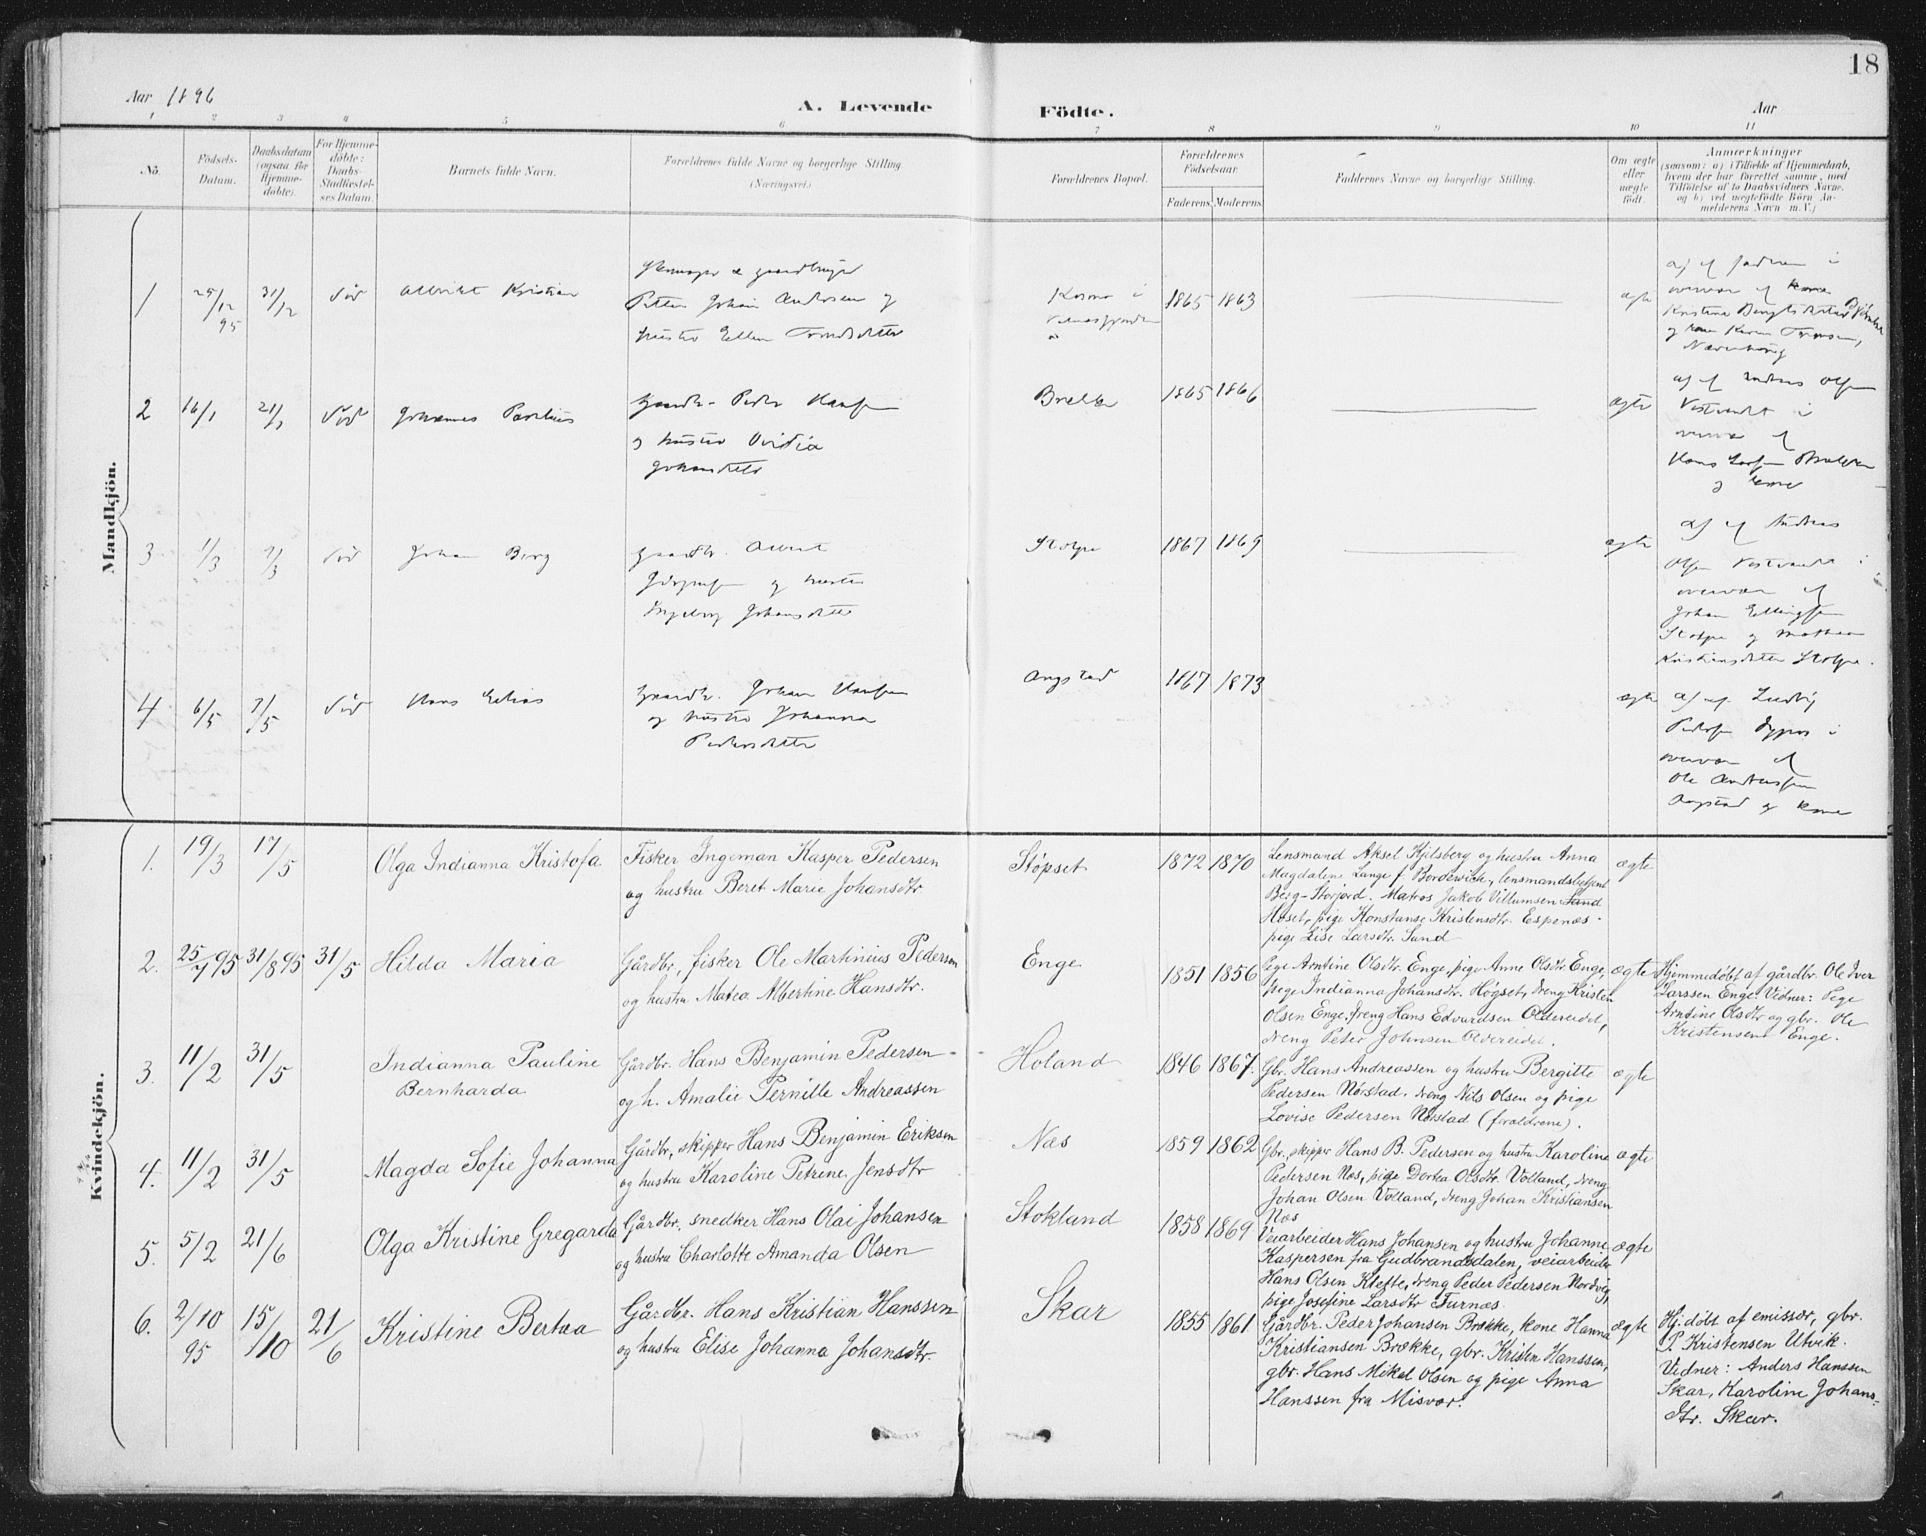 18
Aar 1896
A. Levende
Födte.
Aar
1 2 3 4 5 6 7 8 9 10 11
No.
Födsels-
Datum.
Daabsdatum
(ogsaa for
Hjemme-
döbte).
For Hjemme-
döbte:
Daabs-
Stadfæstel-
ses Datum.
Barnets fulde Navn.
Forældrenes fulde Navne og borgerlige Stilling.
(Næringsvei.)
Forældrenes Bopæl.
Forældrenes
Födselsaar.
Faderens.
Moderens.
Faddernes Navne og borgerlige Stilling.
Om ægte
eller
uægte
födt.
Anmærkninger
(saasom: a) i Tilfælde af Hjemmedaab,
hvem der har forrettet samme, med
Tilföielse af to Daabsvidners Navne,
og b) ved uægtefödte Börn An-
melderens Navn m. V.)
Mandkjön.
1 25/12 95 31/12 død Albrikt Kristian
Petter Johan Andersen og
hustru Ellen
1865 1863
ægte
i
overvær af
Kristine
og Karen
2 16/1 21/1 død Johannes
Gaardb. Peder Hansen
og hustru
Johansdtr
1865 1866
ægte
af Andreas Olsen
Vestvand i
overvær af
Hans
og kone
3 1/3 7/3 død Johan Berg
Gaardb. Albert
og hustru
Ingeborg Johansdatter
Stolpe
1867 1869
ægte
af Andreas
Olsen Vestvand i
overvær af
Johan Ellingsen
Stolpe og Mathea
Kristiansdatter Stolpe.
4 6/5 7/5 død Hans Elias
Gaardb. Johan Hansen
og hustru Johanna
Pedersdatter
Angstad
1867 1873
ægte
af Ludvig
Pedersen i
overvær af
Ole
Angstad og kone
Kvindekjön.
1. 19/3 17/5 Olga Indianna Kristofa
Fisker Ingeman Kasper Pedersen
og hustru Beret Marie Johansdtr
Støpset
1872 1870
Lensmand Aksel Kjelsberg og hustru Anna
Magdalene Lange f. Borderwich, lensmandsbetjent
Berg-Storjord. Matros Jakob Villumsen Sand
Høset, pige Konstanse Kristensdtr. Espenæs -
pige Lise Larsdtr. Sand
ægte
2. 25/7 95 31/8 95 31/5 Hilda Maria
Gårdbr, fisker Ole Martinius Pedersen
og hustru Matea Albertine Hansdtr.
Enge
1851 1856
Pige Arntine Olsdtr. Enge, pige Anne Olsdtr. Enge,
pige Indianna Johansdtr. Høgset, dreng Kristen
Olsen Enge, dreng Hans Edvardsen Oldereidet,
dreng Peter Johnsen Oldereidet.
ægte
Hjemmedøbt af gårdbr. Ole Iver
Larssen Enge. Vidner: Pige
Arntine Olsdtr og gbr. Ole
Kristensen Enge.
3. 11/2 31/5 Indianna Pauline
Bernharda
Gårdbr. Hans Benjamin Pedersen -
og h. Amalie Pernille Andreassen
Holand
1846 1867.
Gbr. Hans Andreassen og hustru Bergitte
Pedersen Nørstad, dreng Nils Olsen og pige
Lovise Pedersen Nørstad (forældrene).
ægte
4. 11/2 31/5 Magda Sofie Johanna
Gårdbr, skipper Hans Benjamin Eriksen
og hustru Karoline Petrine Jensdtr
Næs
1859 1862
Gbr, skipper Hans B. Pedersen og hustru Karoline
Pedersen Næs, pige Dorka Olsdtr. Volland, dreng
Johan Olsen Volland, dreng Johan Kristiansen
Næs
ægte
5. 5/2 21/6 Olga Kristine Gregarda
Gårdbr. snedker Hans Olai Johansen
og hustru Charlotte Amanda Olsen
Stokland
1858 1869
Veiarbeider Hans Johansen og hustru Johanne
Kaspersen fra Gudbrandsdalen, veiarbeider
Hans Olsen Klefte, dreng Peder Pedersen Nordvig,
pige Josefine Larsdtr Furnæs
ægte
6. 2/10 95 15/10 21/6 Kristine Bertea
Gårdbr. Hans Kristian Hanssen
og hustru Elise Johanna Johansdtr.
Skar
1855 1861.
Gårdbr. Peder Johansen Brække, kone Hanna
Kristiansen Brække, gbr. Kristen Hanssen,
gbr. Hans Mikel Olsen og pige Anna
Hanssen fra Misvær.
ægte
Hj.døbt af emissær, gbr.
P. Kristensen Utvik.
Vidner: Anders Hanssen
Skar, Karoline Johans-
dtr. Skar.